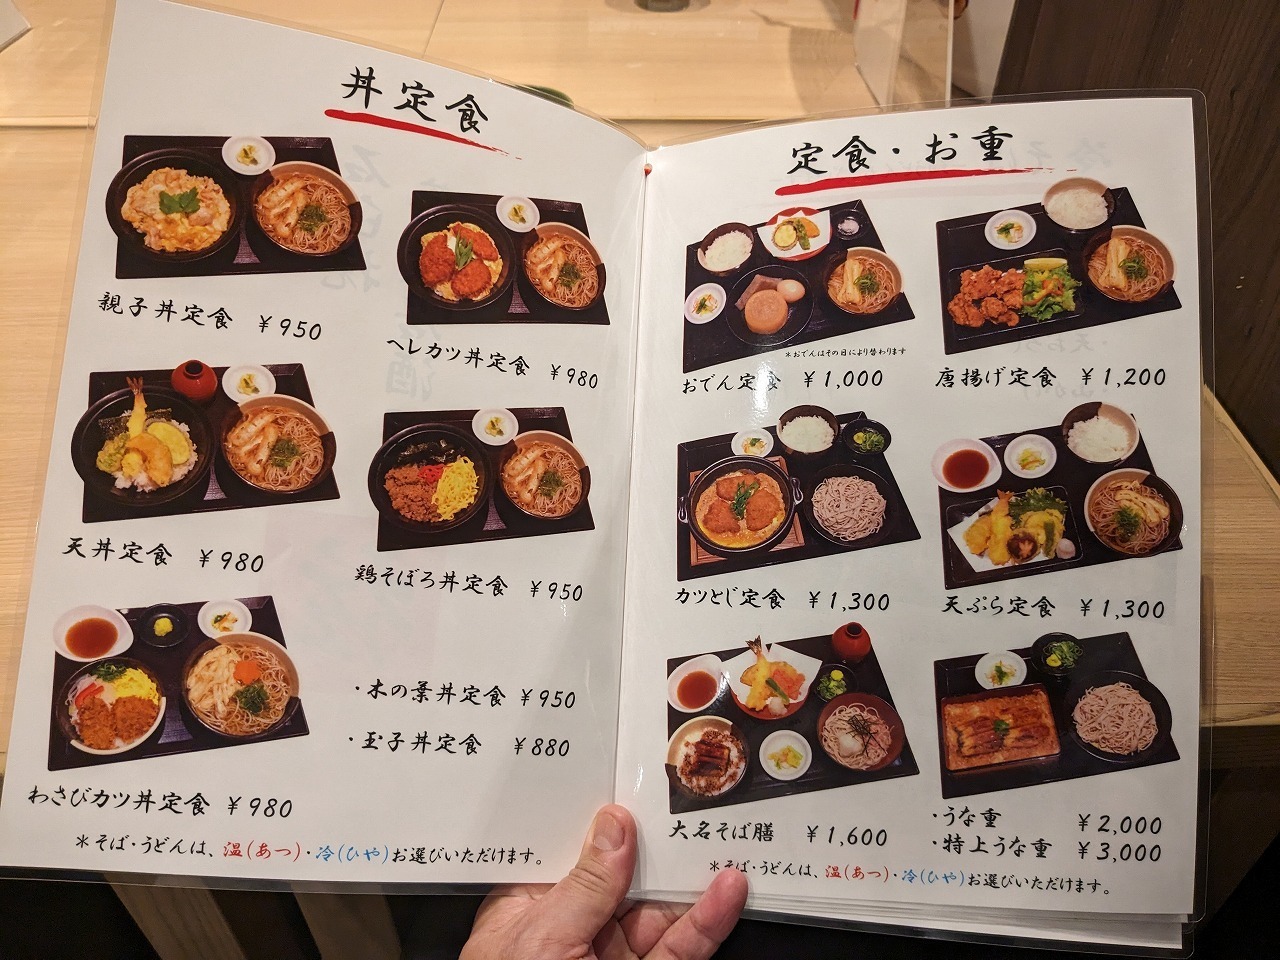 丼定食
親子丼定食 ￥950
ヘレカツ丼定食 ￥980
天丼定食 ￥980
鶏そぼろ丼定食 ￥950
・木の葉丼定食 ￥950
・玉子丼定食 ￥880
わさびカツ丼定食 ￥980
＊そば・うどんは、温(あつ)・冷(ひや)お選びいただけます。
定食・お重
＊おでんはその日により替わります
おでん定食 ￥1,000
唐揚げ定食 ￥1,200
カツとじ定食 ￥1,300
天ぷら定食 ￥1,300
大名そば膳 ￥1,600
・うな重 ￥2,000
・特上うな重 ￥3,000
＊そば・うどんは、温(あつ)・冷(ひや)お選びいただけます。